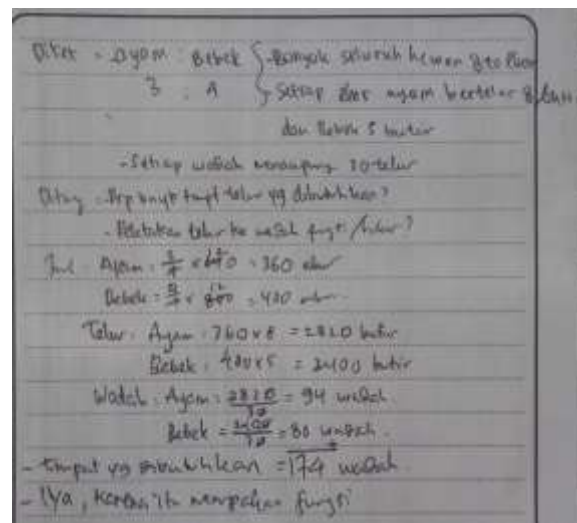 Diket = Ayam : Bebek { - Banyak seluruh hewan 840 ekor
3 : 4 - Setiap ekor ayam bertelur 8 butir
dan Bebek 5 butir
- Setiap wadah menampung 30 telur
Ditany - telur yg dibutuhkan?
- telur ke wadah fungsi / bukan?
Ayam = 3/7 x 840 = 360 ekor
Bebek = 4/7 x 840 = 480
Telur : Ayam : 360 x 8 = 2820 butir
Bebek : 480 x 5 = 2400 butir
Wadah : Ayam : 2820/30 = 94 wadah
Bebek = 2400/30 = 80 wadah
- tempat yg dibutuhkan = 174 wadah
- Iya, karena itu merupakan fungsi